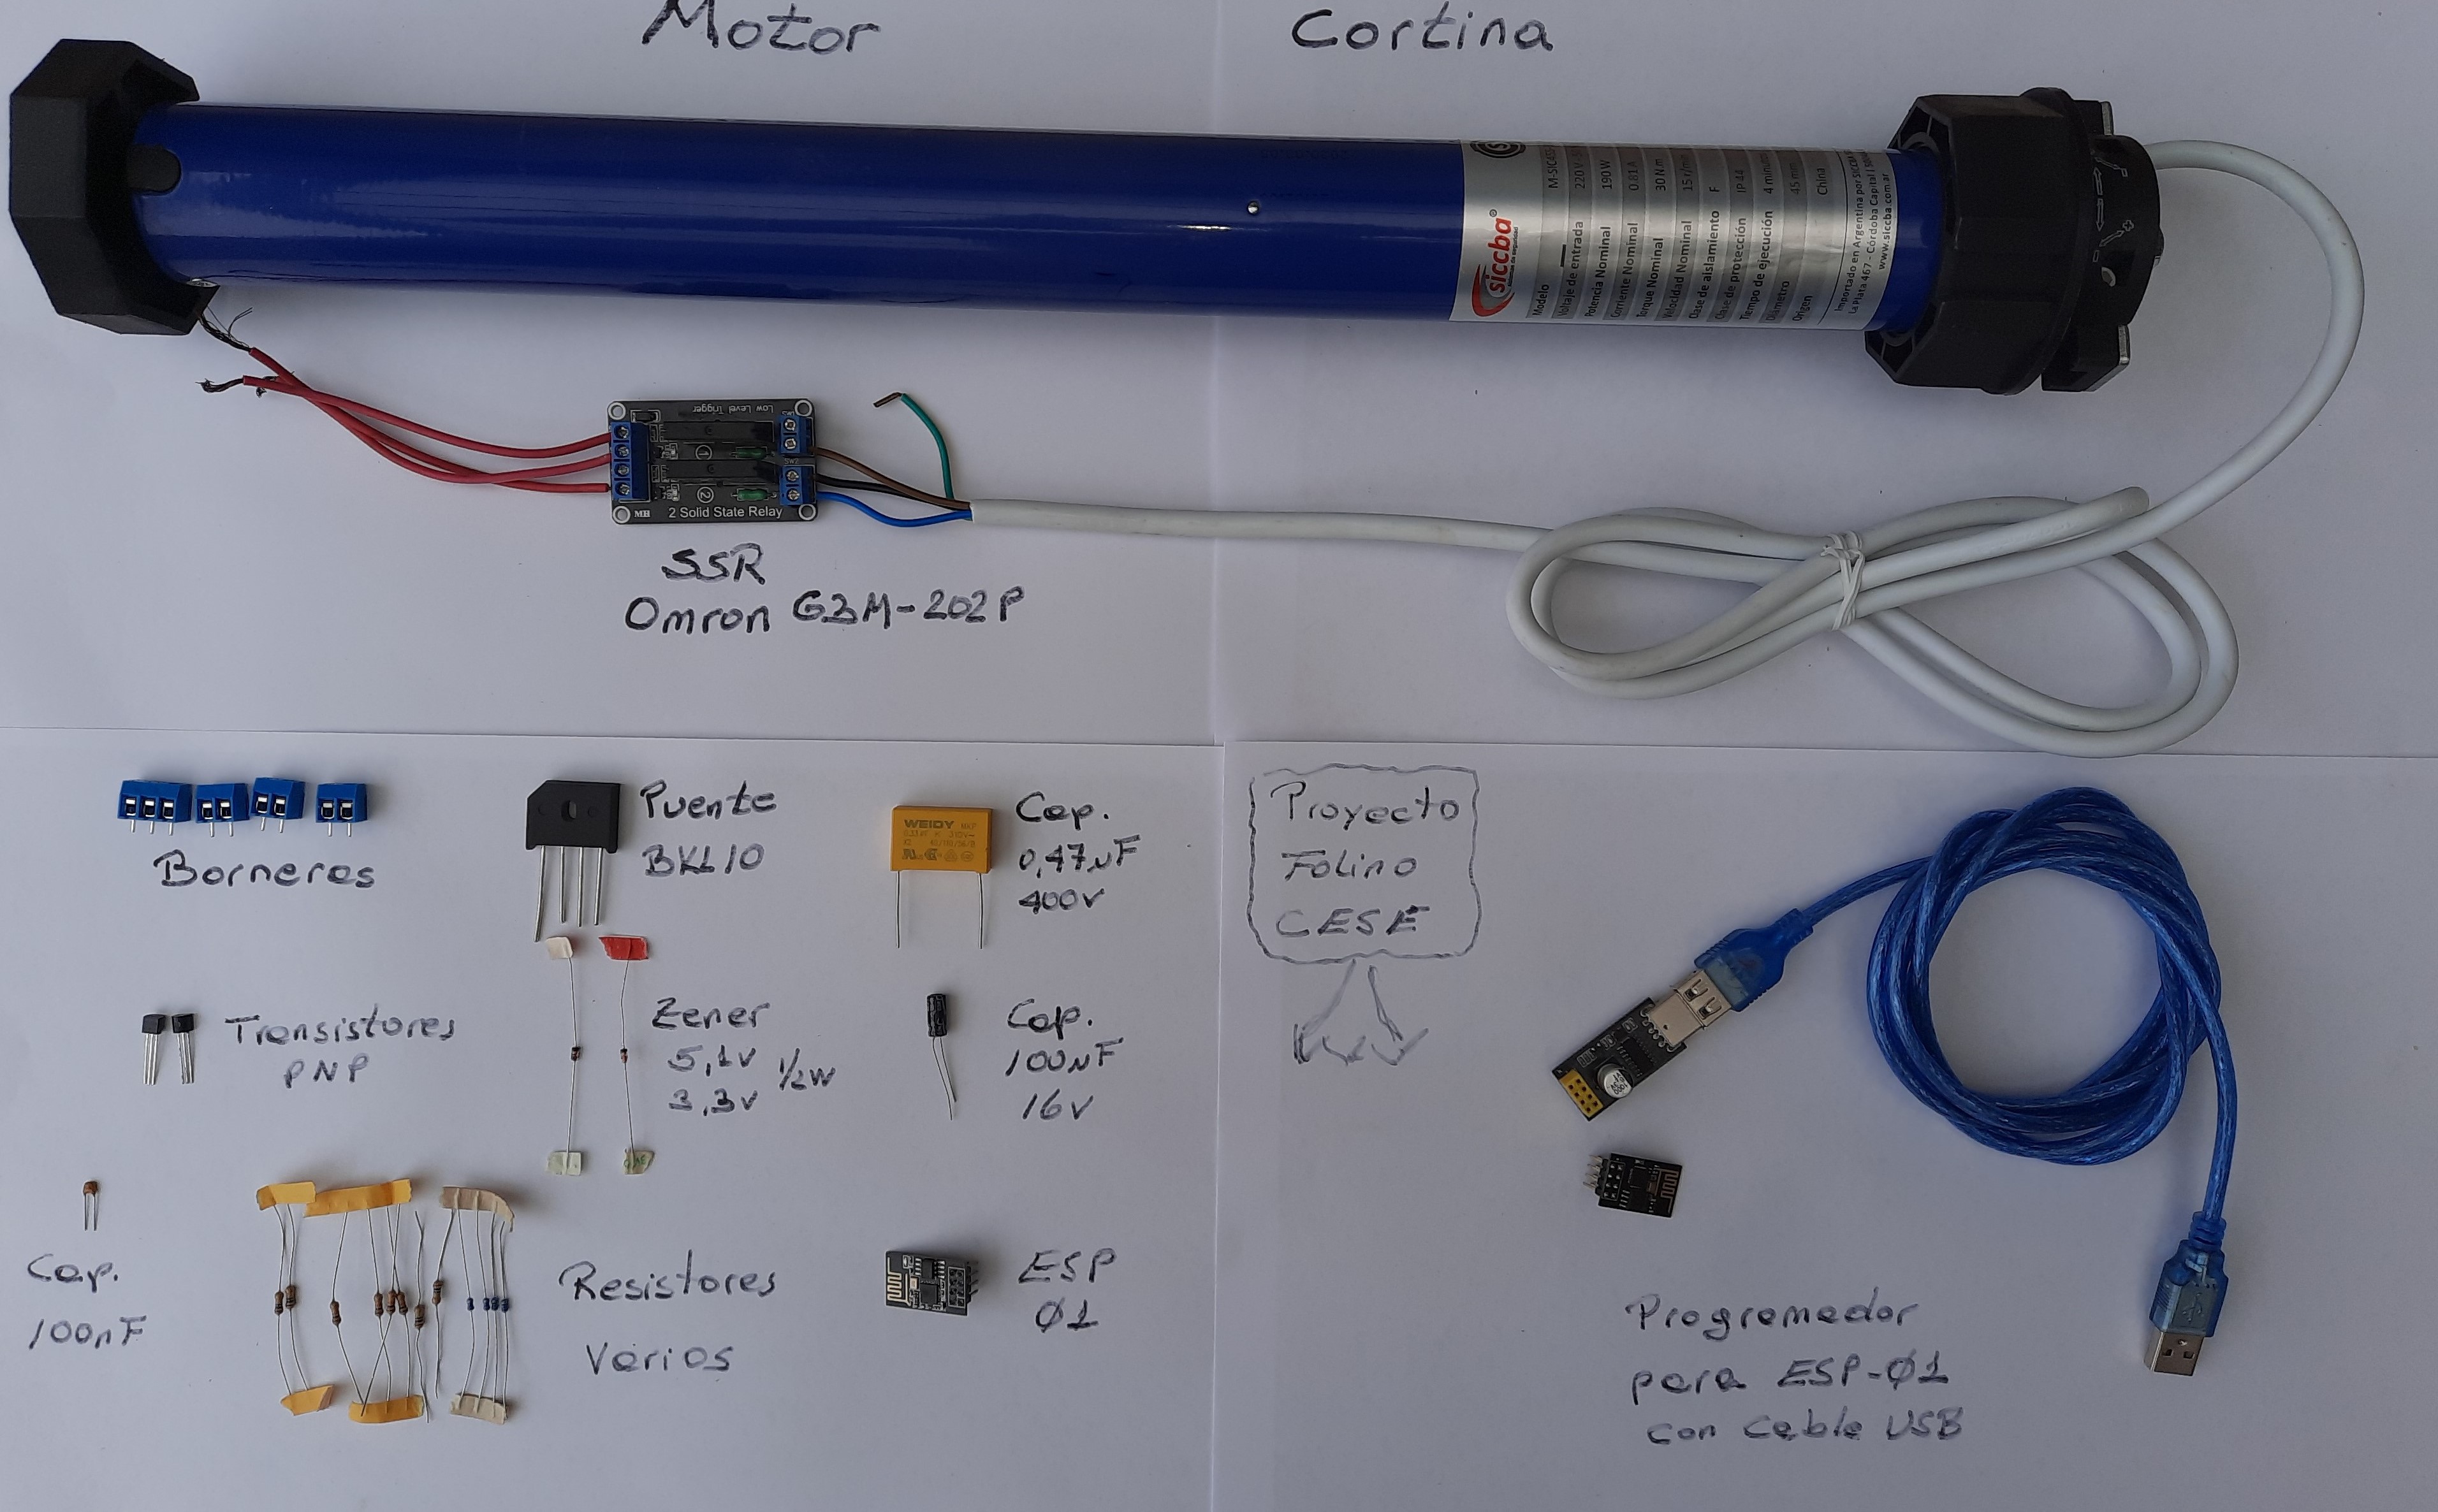 Motor Cortina
siccba
Modelo
Voltaje de entrada
Potencia Nominal 190 W
Corriente Nominal 0.81 A
Torque Nominal 30 N.m
Velocidad Nominal
Clase de aislamiento F
Clase de protección IP 44
Tiempo de ejecución
Diámetro 45 mm
Origen China
Importado en Argentina por SICCBA
La Plata 467 - Córdoba Capital
www.siccba.com.ar
Low Level Trigger
1
2
MH 2 Solid State Relay
SSR
Omron G3M-202P
Borneras
Puente
BKL10
WEIDY MKP
Cap.
0,47uF
400v
Proyecto
Folino
CESE
Transistores
PNP
Zener
5,1v
3,3v
1/2W
Cap.
100uF
16v
Cap.
100nF
Resistores
Varios
ESP
01
Programador
para ESP-01
con cable USB